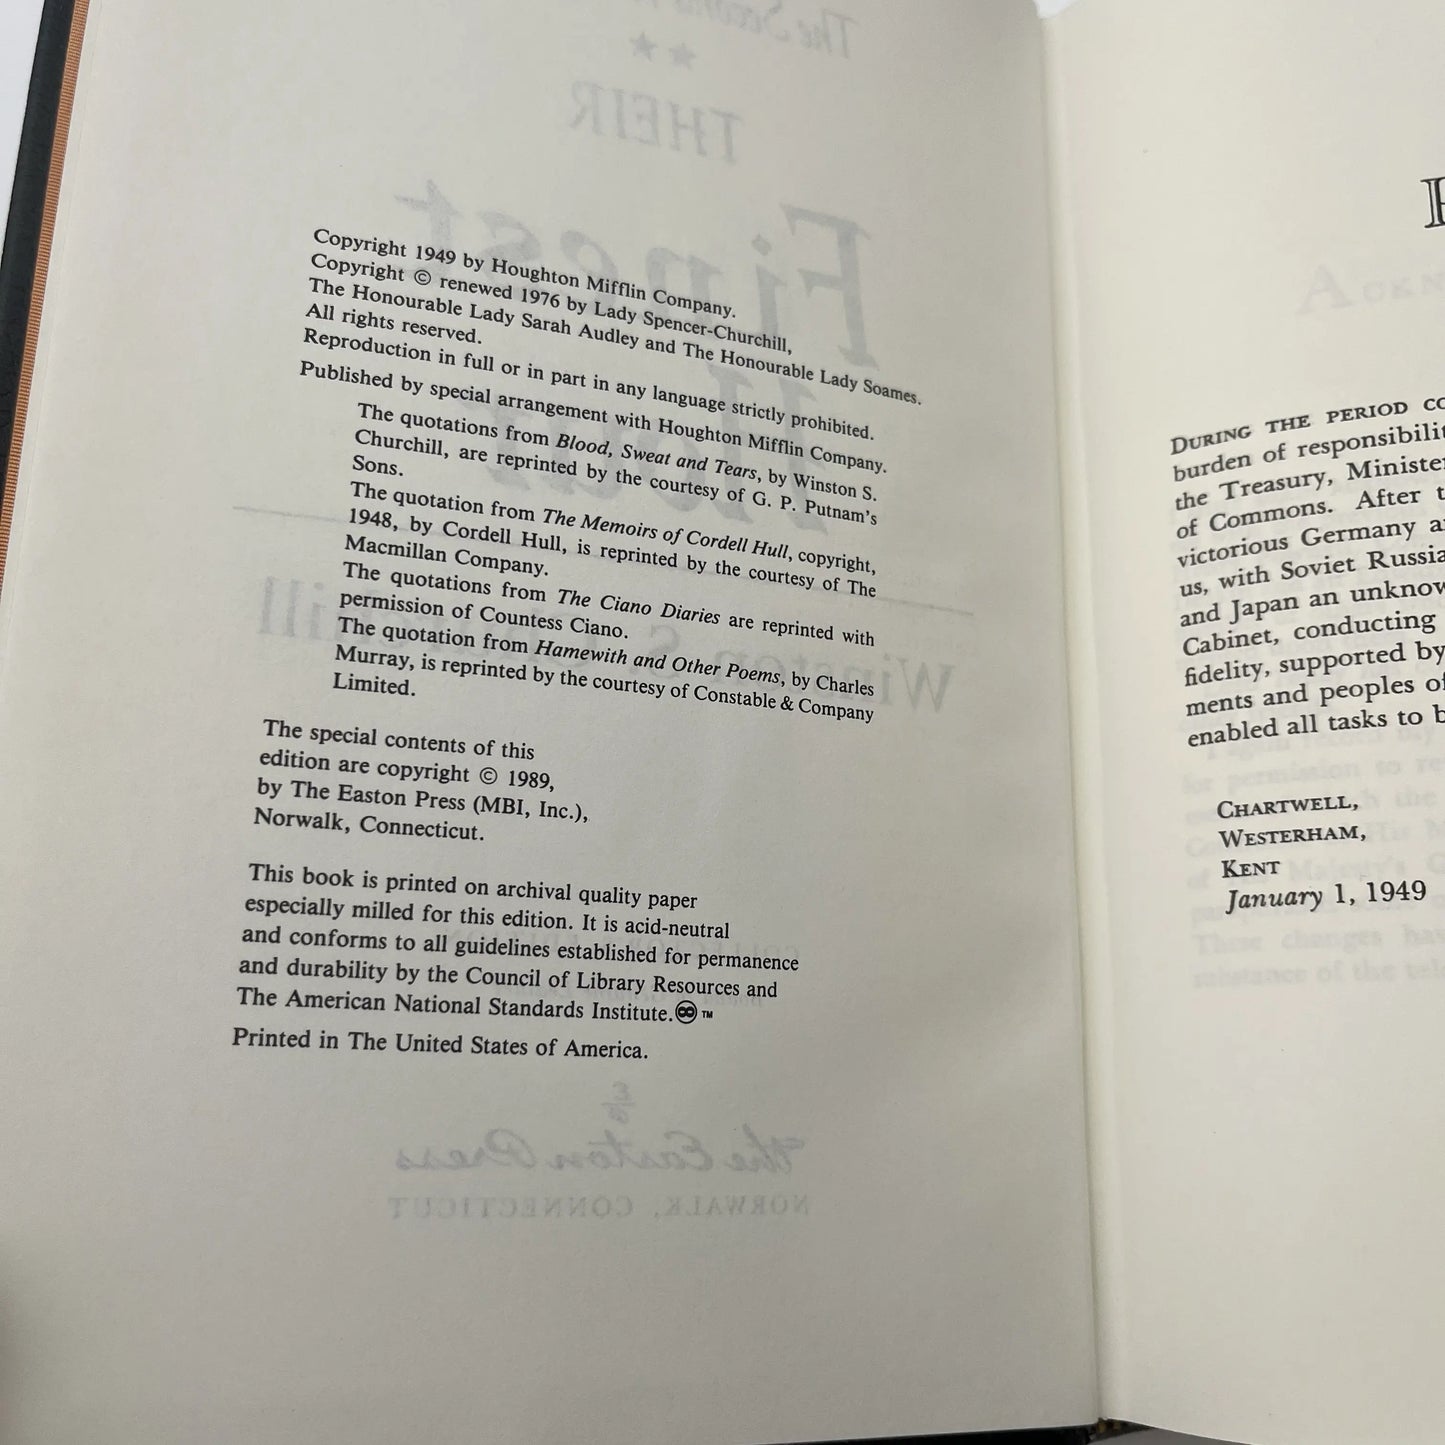 Copyright 1949 by Houghton Mifflin Company.
Copyright © renewed 1976 by Lady Spencer-Churchill,
The Honourable Lady Sarah Audley and The Honourable Lady Soames.
All rights reserved.
Reproduction in full or in part in any language strictly prohibited.
Published by special arrangement with Houghton Mifflin Company.
The quotations from Blood, Sweat and Tears, by Winston S.
Churchill, are reprinted by the courtesy of G. P. Putnam's
Sons.
The quotation from The Memoirs of Cordell Hull, copyright,
1948, by Cordell Hull, is reprinted by the courtesy of The
Macmillan Company.
The quotations from The Ciano Diaries are reprinted with
permission of Countess Ciano.
The quotation from Hamewith and Other Poems, by Charles
Murray, is reprinted by the courtesy of Constable & Company
Limited.
The special contents of this
edition are copyright © 1989,
by The Easton Press (MBI, Inc.),
Norwalk, Connecticut.
This book is printed on archival quality paper
especially milled for this edition. It is acid-neutral
and conforms to all guidelines established for permanence
and durability by the Council of Library Resources and
The American National Standards Institute.♾™
Printed in The United States of America.
DURING THE PERIOD
burden of
the Treasury,
of Commons. After
victorious Germany
us, with Soviet Russia
and Japan an
Cabinet, conducting
fidelity, supported by
ments and peoples
enabled all tasks to
CHARTWELL,
WESTERHAM,
KENT
January 1, 1949